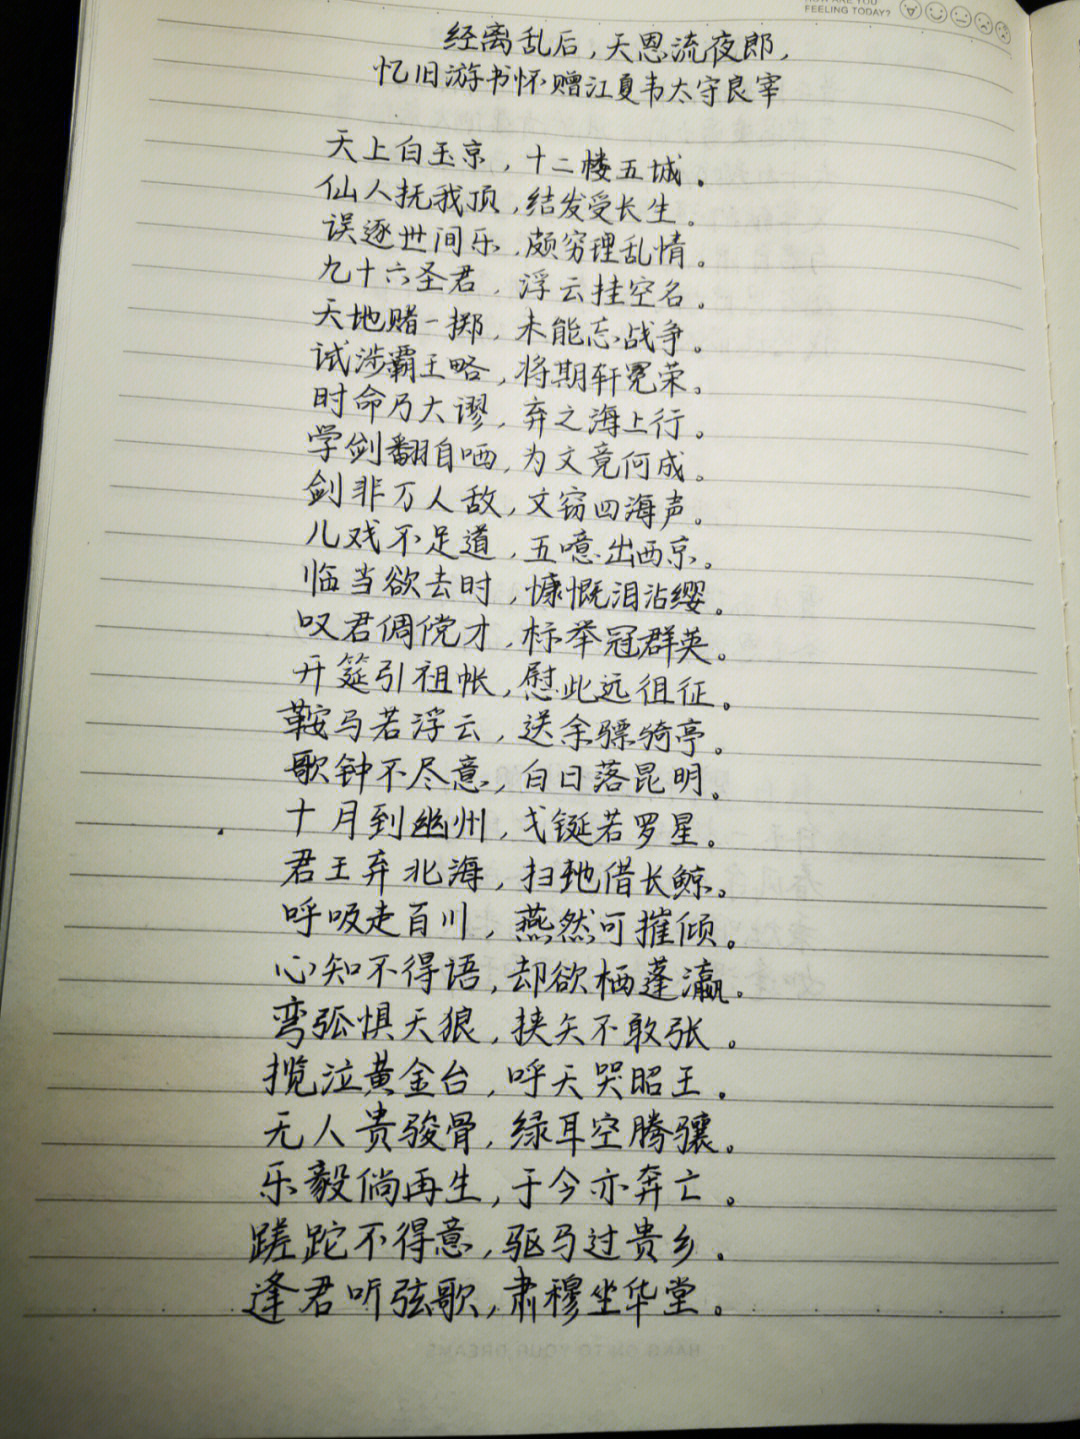 HOW ARE YOU
FEELING TODAY?
经离乱后，天恩流夜郎，
忆旧游书怀赠江夏韦太守良宰
天上白玉京，十二楼五城。
仙人抚我顶，结发受长生。
误逐世间乐，颇穷理乱情。
九十六圣君，浮云挂空名。
天地赌一掷，未能忘战争。
试涉霸王略，将期轩冕荣。
时命乃大谬，弃之海上行。
学剑翻自哂，为文竟何成。
剑非万人敌，文窃四海声。
儿戏不足道，五噫出西京。
临当欲去时，慷慨泪沾缨。
叹君倜傥才，标举冠群英。
开筵引祖帐，慰此远徂征。
鞍马若浮云，送余骠骑亭。
歌钟不尽意，白日落昆明。
十月到幽州，戈铤若罗星。
君王弃北海，扫地借长鲸。
呼吸走百川，燕然可摧倾。
心知不得语，却欲栖蓬瀛。
弯弧惧天狼，挟矢不敢张。
揽泣黄金台，呼天哭昭王。
无人贵骏骨，绿耳空腾骧。
乐毅倘再生，于今亦奔亡。
蹉跎不得意，驱马过贵乡。
逢君听弦歌，肃穆坐华堂。